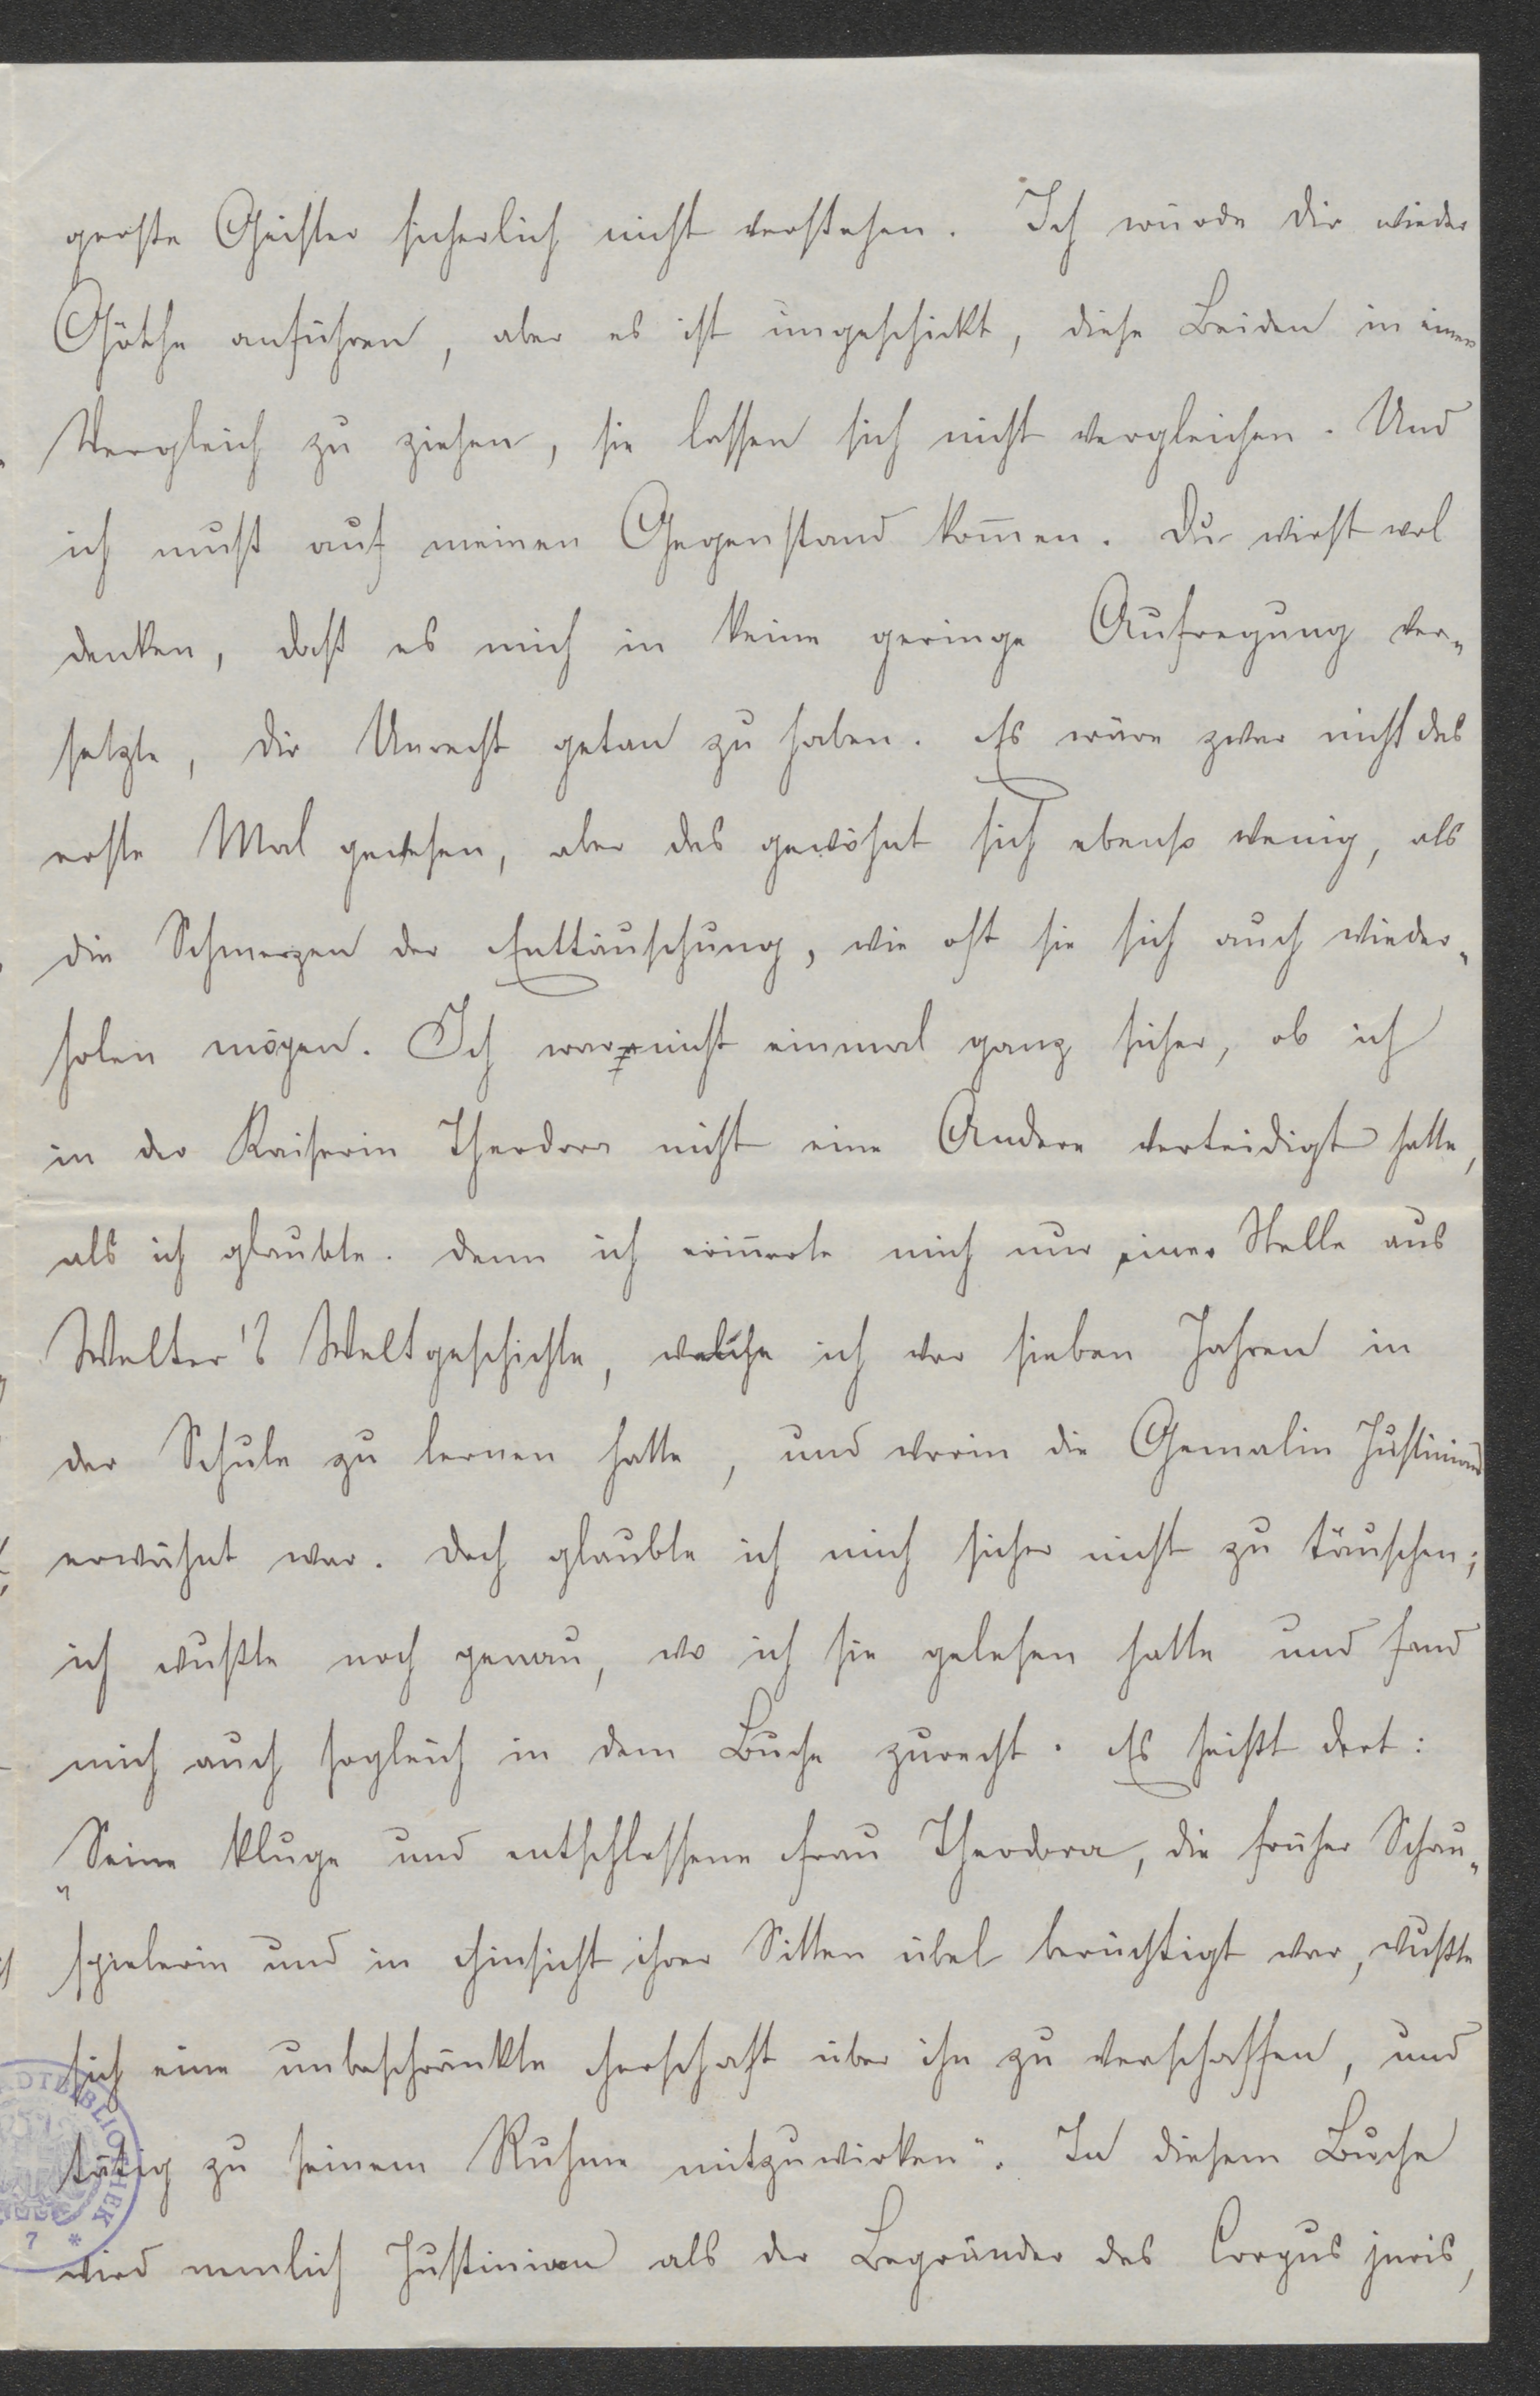 große Geister sicherlich nicht verstehen. Ich würde dir wieder
Göthe anführen, aber es ist ungeschickt, diese Beiden in einen
Vergleich zu ziehen, sie lassen sich nicht vergleichen. Und
ich muß auf meinen Gegenstand kom̄en. Du wirst wol
denken, daß es mich in keine geringe Aufregung ver-
setzte, dir Unrecht getan zu haben. Es wäre zwar nicht das
erste Mal gewesen, aber das gewöhnt sich ebenso wenig, als
die Schmerzen der Enttäuschung, wie oft sie sich auch wieder-
holen mögen. Ich war nicht einmal ganz sicher, ob ich
in der Kaiserin Theodora nicht eine Andere verteidigt hatte,
als ich glaubte. denn ich erin̄erte mich nur einer Stelle aus
Welter's Weltgeschichte, welche ich vor sieben Jahren in
der Schule zu lernen hatte, und worin die Gemalin Justinians
erwähnt war. doch glaubte ich mich sicher nicht zu täuschen;
ich wußte noch genau, wo ich sie gelesen hatte und fand
mich auch sogleich in dem Buche zurecht. Es heißt dort:
„Seine kluge und entschlossene Frau Theodora, die früher Schau-
spielerin und in Hinsicht ihrer Sitten übel berüchtigt war, wußte
sich eine unbeschränkte Herschaft über ihn zu verschaffen, und
tätig zu seinem Ruhme mitzuwirken". In diesem Buche
wird nemlich Justinian als der Begründer des Corpus juris,
STADTBIBLIOTHEK